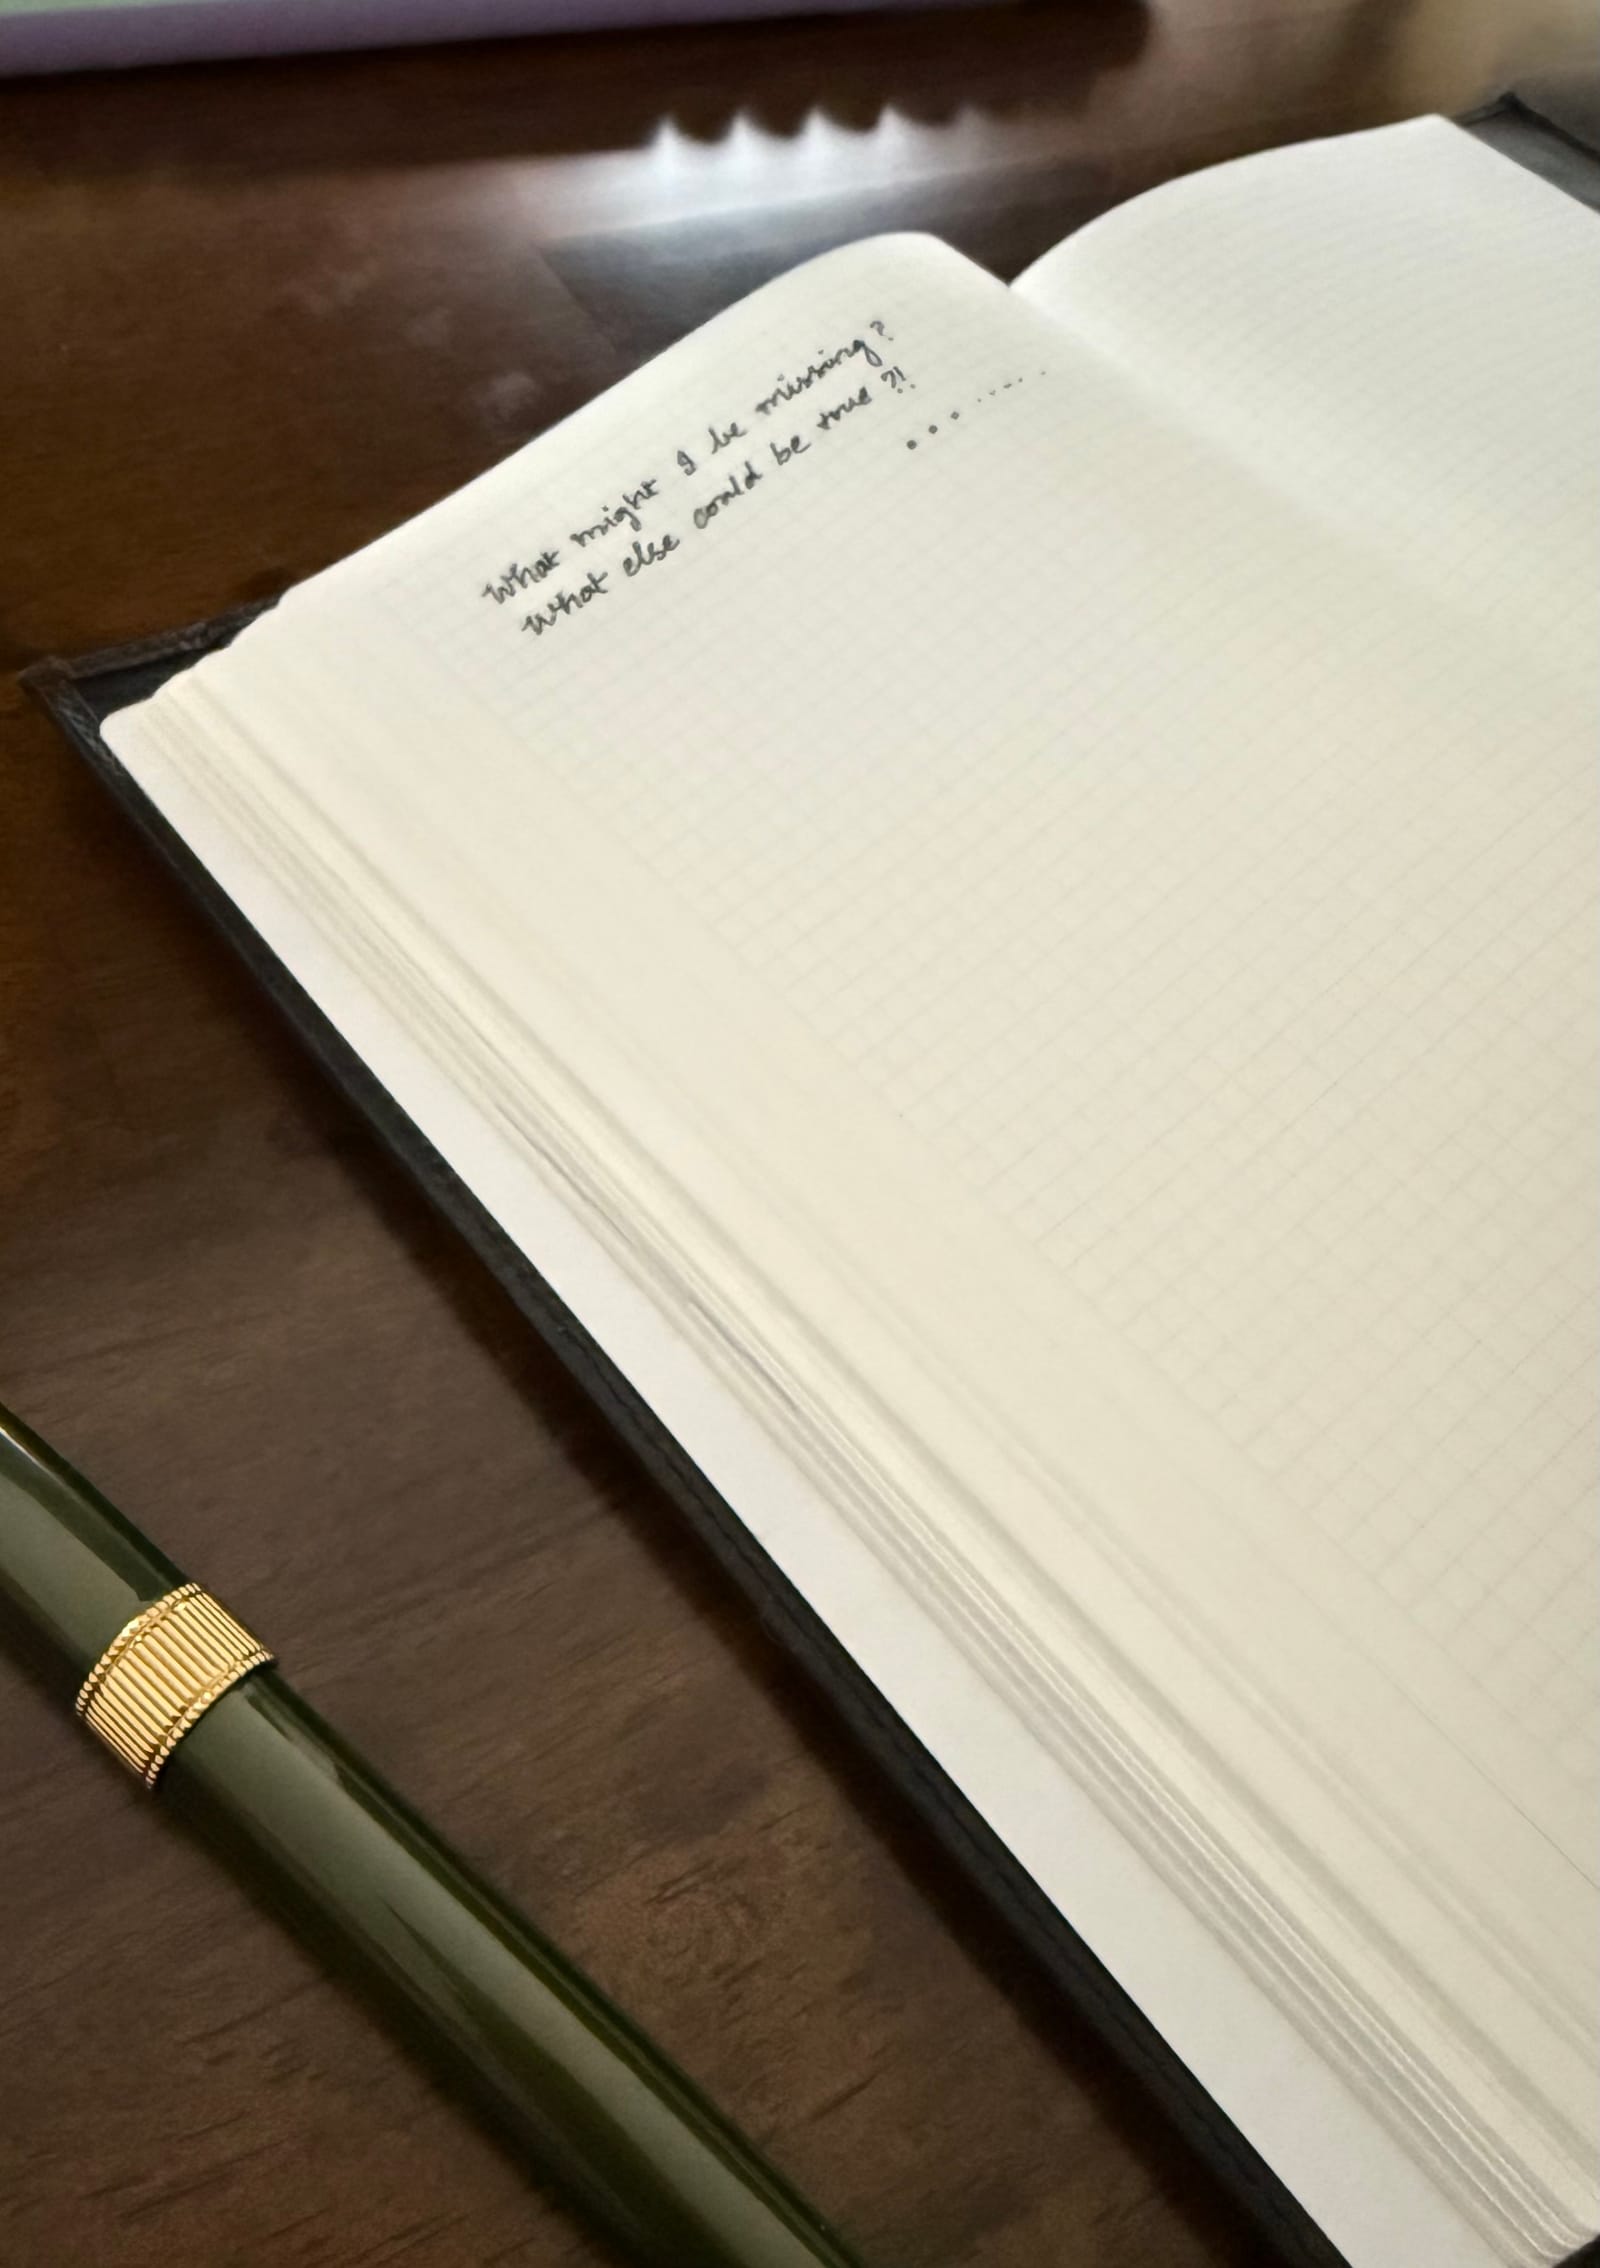 What might I be missing?
What else could be true ?!
. . . . . . . . .